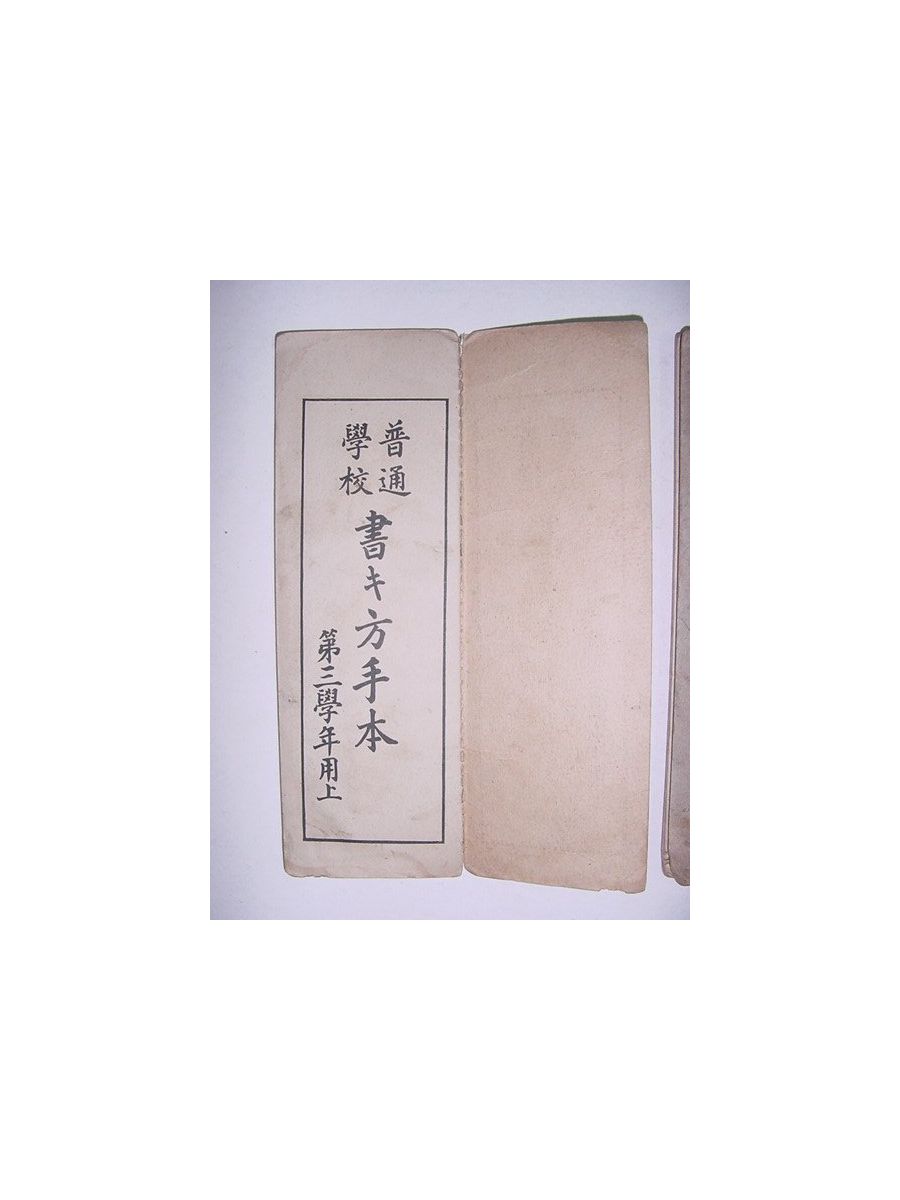 普通
學校
書キ方手本
第三學年用上